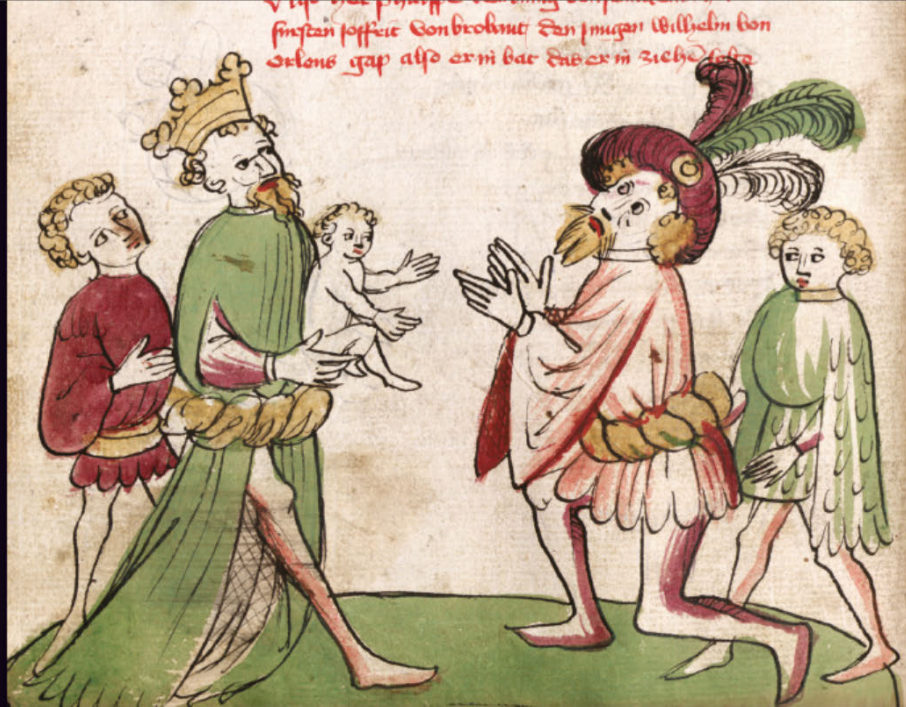 fürsten Joffrit von brobant den jungen Wilhelm von
Orlens gap also er in bat das er in ziehẽ solte